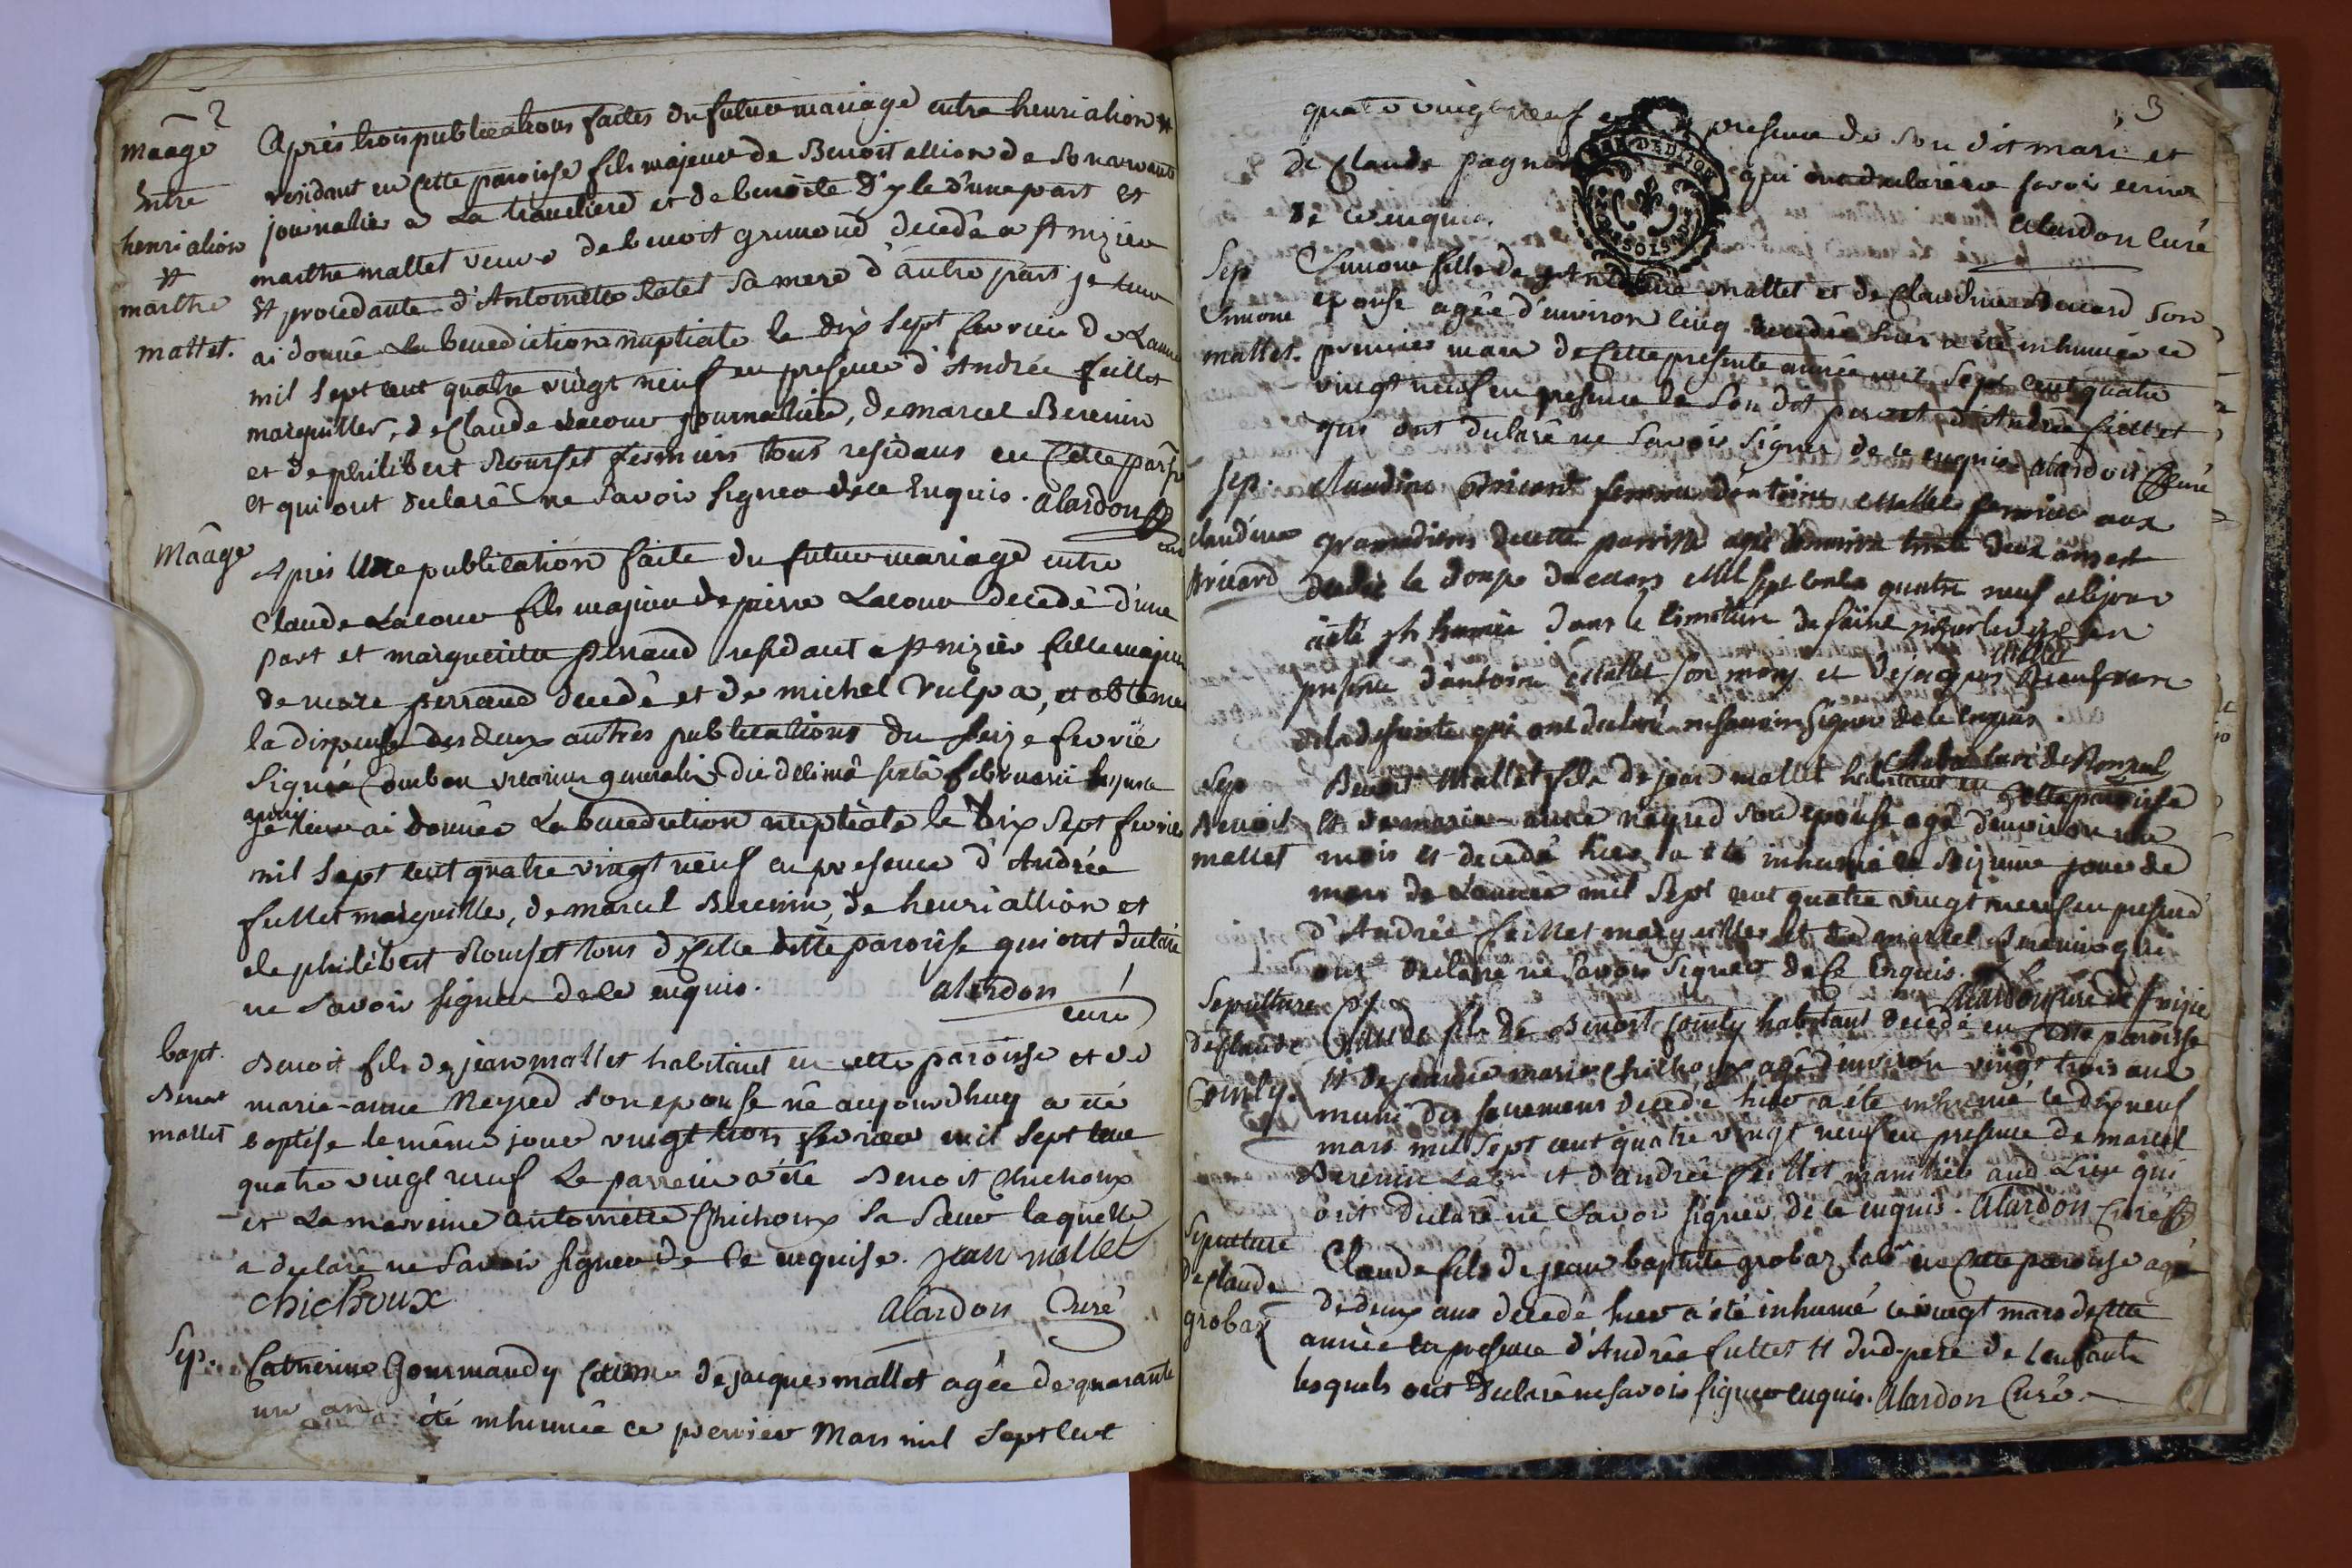 2
Maâge
Entre
henri alion
et
marthe
mallet.
Après trois publications faites du futur mariage entre henri alion
residant en cette paroisse fils majeur de Benoit allion de son vivant
journalier a La et de benoite d'yle d'une part et
marthe mallet veuve de benoit grumond decedé a st nizier
et procedante d'Antoinette sa mere d'autre part je curé
ai donné La benediction nuptiale le dix sept fevrier de L'année
mil sept cent quatre vingt neuf en presence d'Andrée feillet
marguiller, de Claude Lacour journallier, de marcel Berenin
et de philibert Rourset fermiers tous residans en Cette parsse
et qui ont declaré ne savoir signer de ce Enquis. alardon
curé
Maâge
Après Une publication faite du futur mariage entre
Claude Lacour fils majeur de pierre Lacour decedé d'une
part et margueritte perraud residant a st nizier fille majeure
de marc perraud decedé et de michel Vulpa, et obtenu
la dispense des deux autres publications du seize fevrie
Signée Courbon vicarius generalis die decimâ sextâ februarii
après
je curé ai donnée La benediction nuptiale le dix sept fevrier
mil sept cent quatre vingt neuf en presence d'Andrée
fuillet marguiller, de marcel Berenin, de henri allion et
de philibert Rourset tous de Cette ditte paroisse qui ont declaré
ne savoir signer de ce enquis. alardon
curé
bapt.
Benoit
mallet
Benoit fils de jean mallet habitant en cette paroisse et de
marie-anne Neyred son epouse né aujourdhuy a été
baptisé le même jour vingt trois fevrier mil sept cent
quatre vingt neuf Le parrein a été Benoit Chichoux
et La marreine antoinette Chichoux sa Sœur laquelle
a declaré ne Savoir signer de Ce enquise. jean mallet
Chichoux
alardon Curé
Sep.
Catherine Gourmandy femme de jacques mallet agée de quarante
un an a été inhumée ce premier Mars mil sept cent
3
quatre vingt neuf en presence de son dit mari et
de Claude pagnon qui ont declaré ne savoir ecrire
de ce enquis.
alardon Curé
Sep
Simone
mallet.
Simone fille de mallet et de Claudine Bricard son
epouse agée d'environ cinq decedée hier a été inhumée ce
premier mars de Cette presente année mil sept cent quatre
vingt neuf en presence de Son dit pere et d'Andrée feillet
qui ont declaré ne savoir signer de ce enquis alardon Curé
sep.
claudine
Bricard
claudine Bricard femme d'antoine mallet fermier aux
de cette paroisse agée d'environ trente deux ans est
decedée le douze de mars mil sept cents quatre neuf et le jour
a été inhumée dans le cimetiere de saint nizier le en
presence d'antoine mallet son mary et de jacques
mallet
de la defunte qui ont declaré ne savoir signer de ce enquis
curé de Ronzuel
Sep
Benoit
mallet
Benoit Mallet fils de jean mallet habitant en cette paroisse
et de marie-anne neyred son epouse agé d'environ un
mois et decedé hier a été inhumé le seizieme jour de
mars de L'année mil sept cent quatre vingt neuf en presence
d'Andrée feillet marguiller et de marcel Berenin qui
ont declaré ne savoir signer de Ce Enquis.
alardon curé de st nizier
Sepulture
de Claude
Cointy.
Claude fils de Benoit Cointy habitant decedé en Cette paroisse
et de jeanne marie Chichoux agé d'environ vingt trois ans
muni des sacremens decedé hier a été inhumé le dix neuf
mars mil sept cent quatre vingt neuf en presence de marcel
Berenin Labr et d'andrée feillet manillier aud Lieu qui
ont declaré ne savoir signer de ce enquis. Alardon Curé
Sepulture
de Claude
grobaz
Claude fils de jean baptiste grobaz labr en Cette paroisse agé
de deux ans decedé hier a été inhumé ce vingt mars de cette
année en presence d'Andrée fuillet et dud. pere de l'enfant
lesquels ont declaré ne savoir signer enquis. Alardon Curé